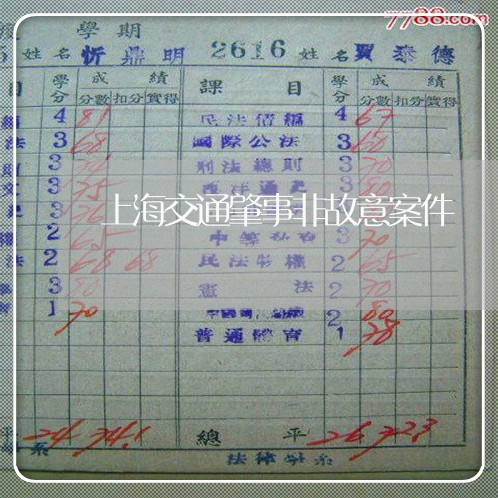 7788.com
學期
姓名 忻鼎明 2616 姓名 賈泰德
目 學分 成績 課目 學分 成績
分數 扣分 實得 分數 扣分 實得
4 81 民法債編 4 67
法 3 68 國際公法 3 60
則 3 刑法總則 3 70
3 75 西洋通史 3
3 76 3
上海交通肇事非故意案件
權 2 65 3 70
法 2 68 68 民法物權 2 65
3 80 憲法 2 70
育 1 70 2 80
普通體育 1 78
平 24 74.1 總平 26 72.3
系 法律學系